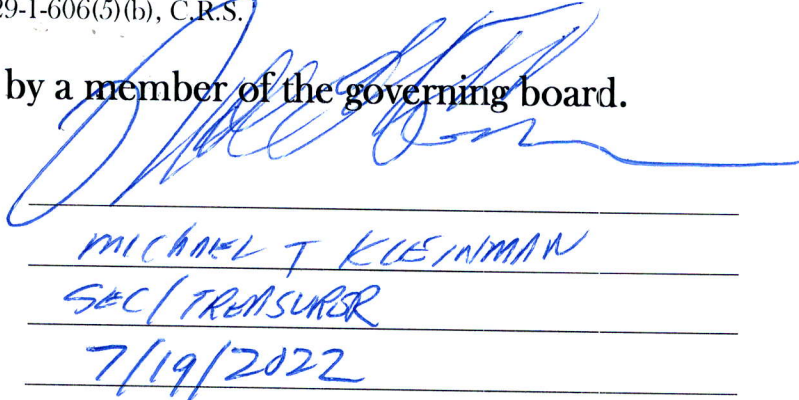 29-1-606(5)(b), C.R.S.
by a member of the governing board.
MICHAEL T KLEINMAN
SEC/TREASURER
7/19/2022